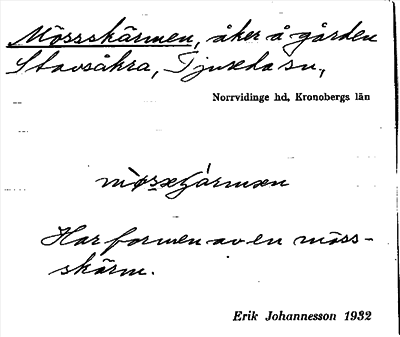 Mössskärmen, åker å gården
Stavsåkra, Tjureda sn,
Norrvidinge hd, Kronobergs län
Har formen av en möss-
skärm.
Erik Johannesson 1932